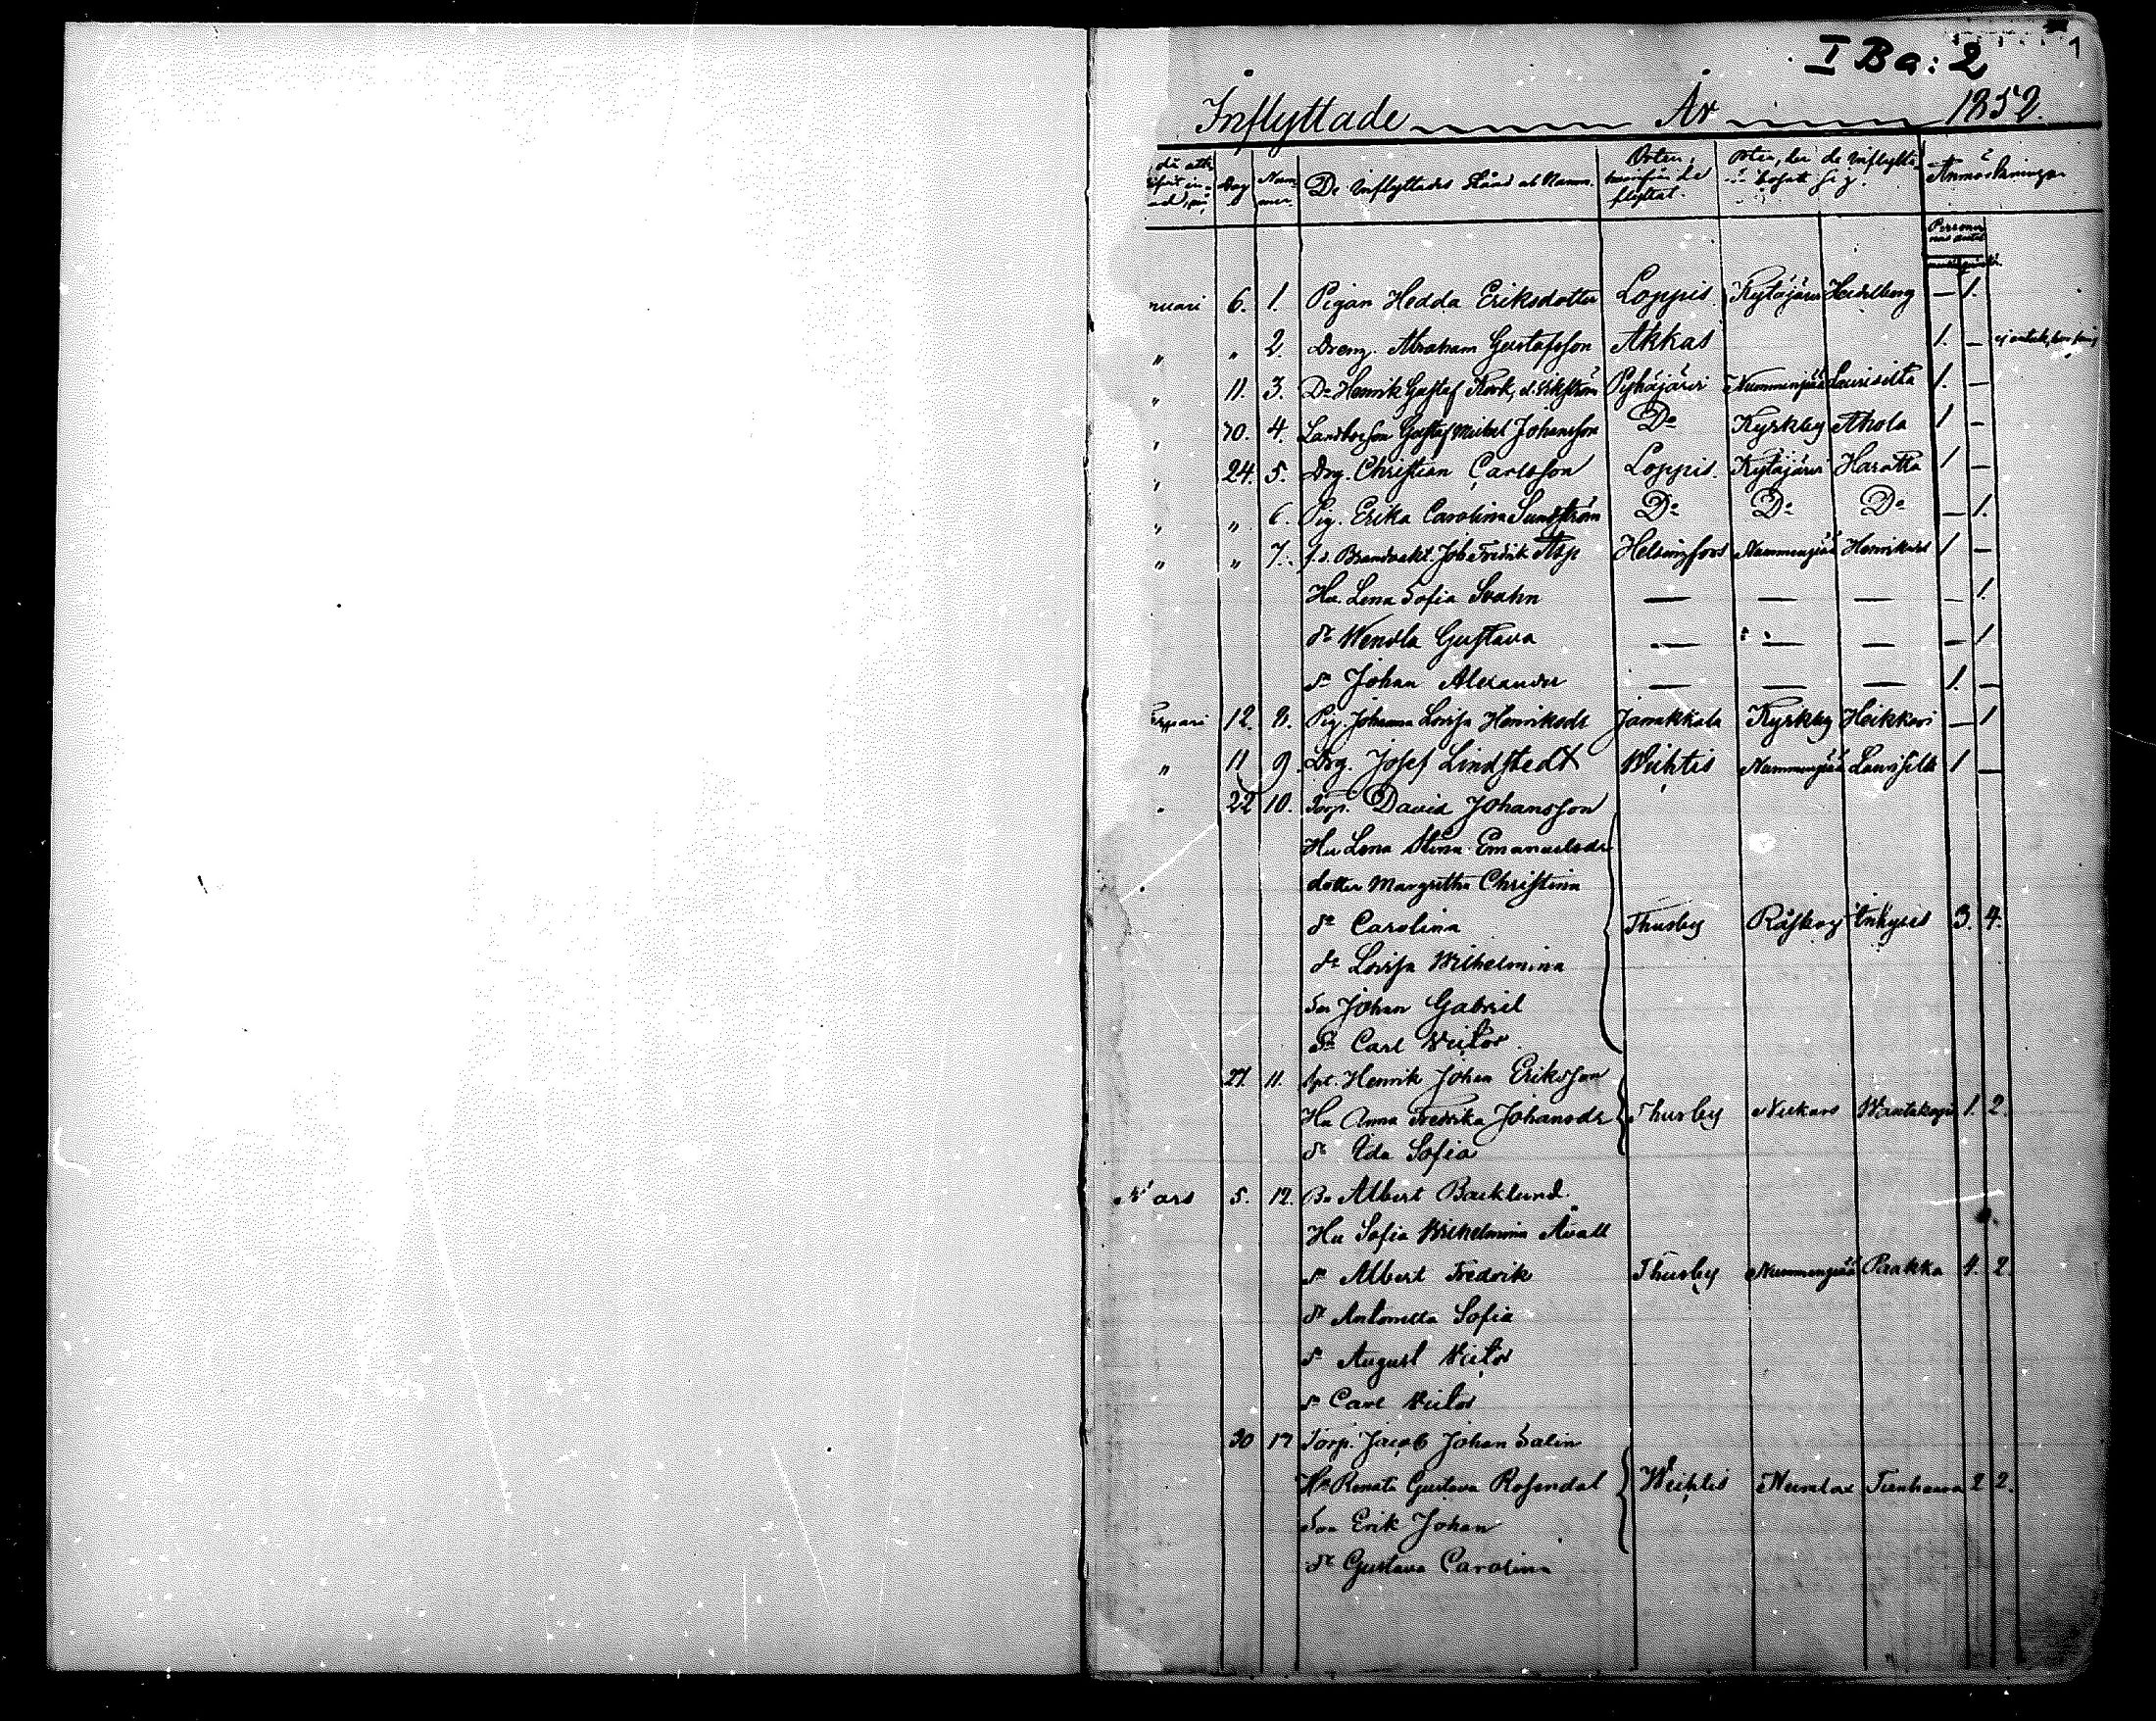 I Ba: 2
1
Inflyttade År 1852.
då att
Dag Num-mer De Inflyttades Stånd och Namn. Orten, hvarifrån de flyttat. Orten, der de inflyttade bosatt sig. Anmärkningar
Personernas antal
nuari 6. 1. Pigan Hedda Eriksdotter Loppis Kytäjärvi Heidelberg — 1.
" " 2. Dreng. Abraham Gustafsson Akkas 1. —
" 11. 3. Do Henrik Gustaf Flork, d. Vikström Pyhäjärvi Nummenpää Laurisilta 1. —
" 20. 4. Landbosson Gustaf Mickel Johansson Do Kyrkby Ahola 1 —
" 24. 5. Drg. Christian Carlsson Loppis Kytäjärvi Haratta 1 —
" " 6. Pig. Erika Carolina Sundström Do Do Do — 1.
" " 7. f.d. Brandvakt. Joh Fredrik Asp Helsingfors Nummenpää Henriksd 1 —
Hu. Lena Sofia Svahn — — — — 1.
dr Wendla Gustava — — — — 1
sn Johan Alexander — — — 1. —
12. 8. Pig. Johanna Lovisa Henriksdr Janakkala Kyrkby Heikkari — 1
" 11 9. Drg. Josef Lindstedt Wichtis Nummenpää Laurisilta 1 —
22 10. Torp. David Johansson
Hu Lena Stina Emanuelsdr
dotter Margretha Christina
dr Carolina Thusby Råskog Unhyvis 3. 4.
dr Lovisa Wilhelmina
Son Johan Gabriel
Sn Carl Victor
27. 11. Spt. Henrik Johan Eriksson
Hu Anna Fredrika Johansdr Thusby Nukars Wantaksgi 1. 2.
dr Ida Sofia
Mars 5. 12. Bo Albert Backlund.
Hu Sofia Wilhelmina Åvall
sn Albert Fredrik Thusby Nummenpää Paakka 4. 2.
dr Antonetta Sofia
sn August Victor
sn Carl Victor
30 13 Torp. Jacob Johan Salin
Hu Renata Gustava Rosendal Wichtis Numlax Tienhaara 2 2.
Son Erik Johan
dr Gustava Carolina